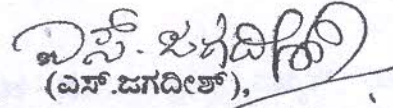 ಎಸ್. ಜಗದೀಶ್
(ಎಸ್.ಜಗದೀಶ್),